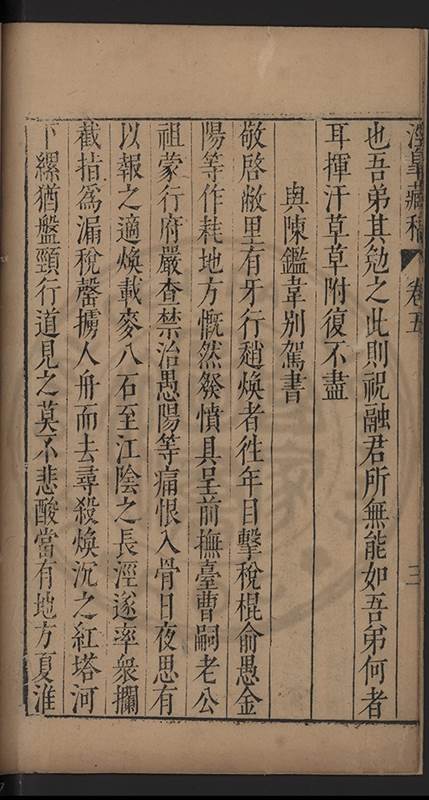 涇臯藏稿 卷五 三
也吾弟其勉之此則祝融君所無能如吾弟何者
耳揮汗草草附復不盡
與陳鑑韋別駕書
敬啓敝里有牙行趙煥者徃年目擊稅棍俞愚金
陽等作耗地方慨然發憤具呈前撫臺曹嗣老公
祖蒙行府嚴查禁治愚陽等痛恨入骨日夜思有
以報之適煥載麥八石至江陰之長涇遂率衆攔
截指爲漏稅罄擄人舟而去尋殺煥沉之紅塔河
下縲猶盤頸行道見之莫不悲酸當有地方夏淮